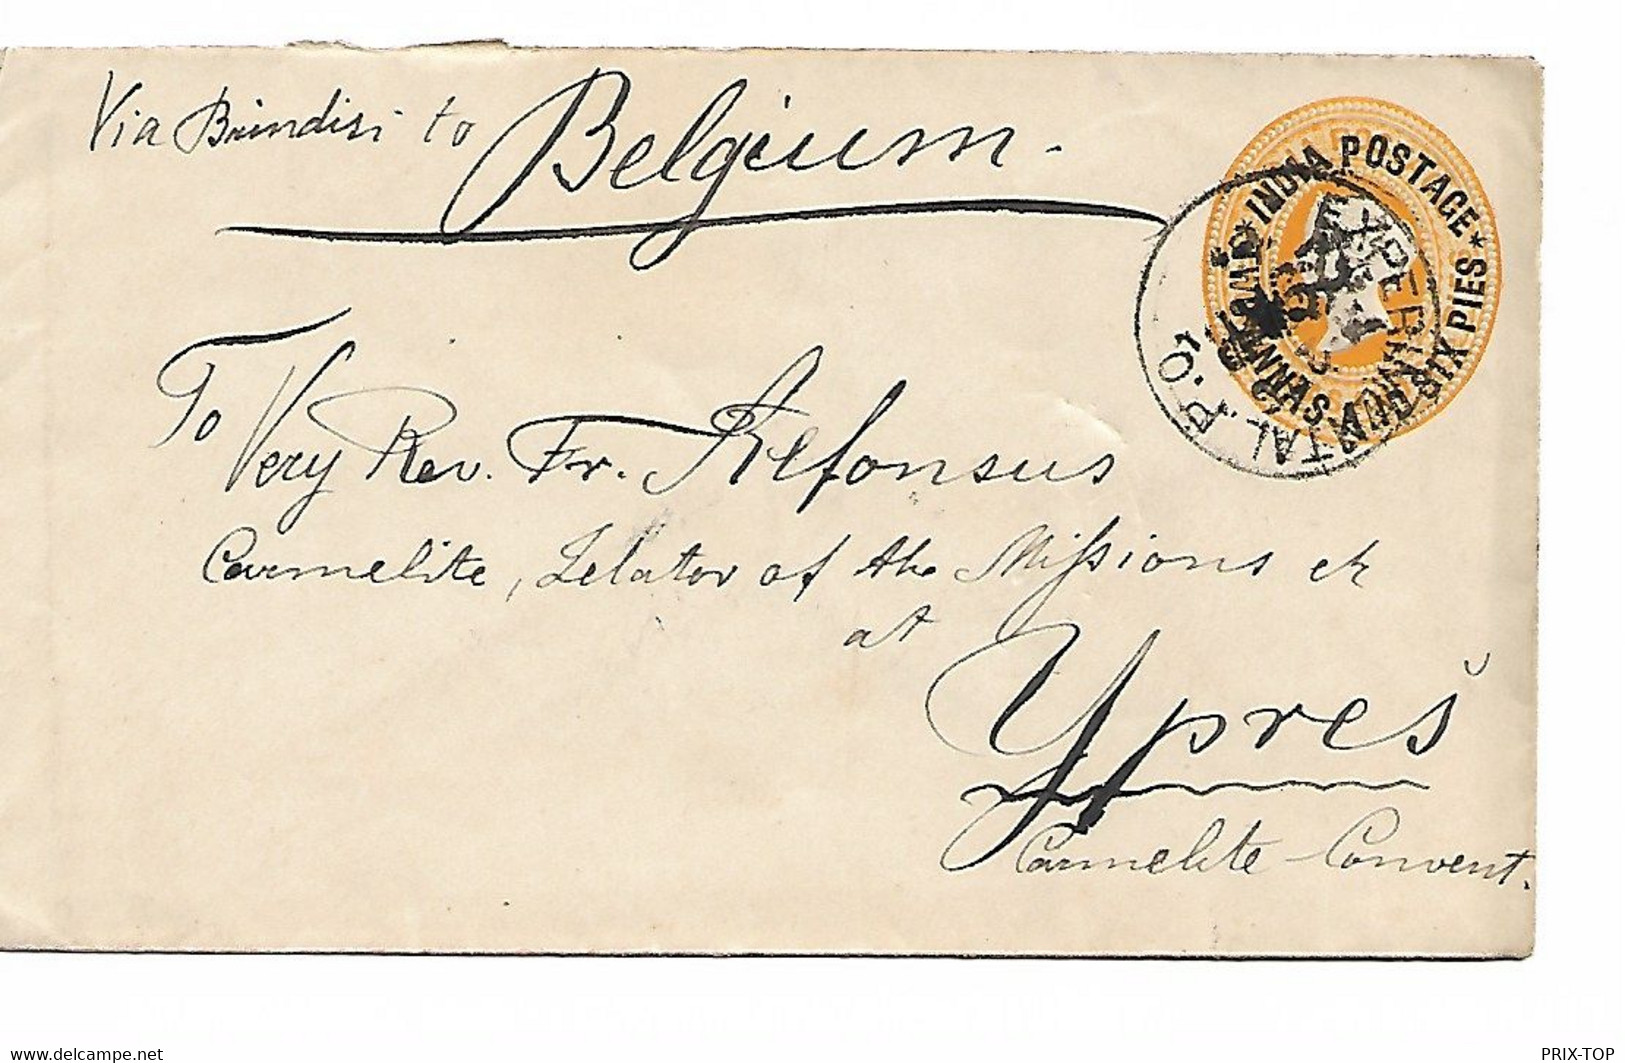 Via Brindisi to Belgium.
INDIA POSTAGE
TWO ANNAS AND SIX PIES
EXPERIMENTAL P.O.
To
Very Rev. Fr.
Carmelite, Zelator of the Missions
at
Ypres
Carmelite Convent.
delcampe.net
PRIX-TOP